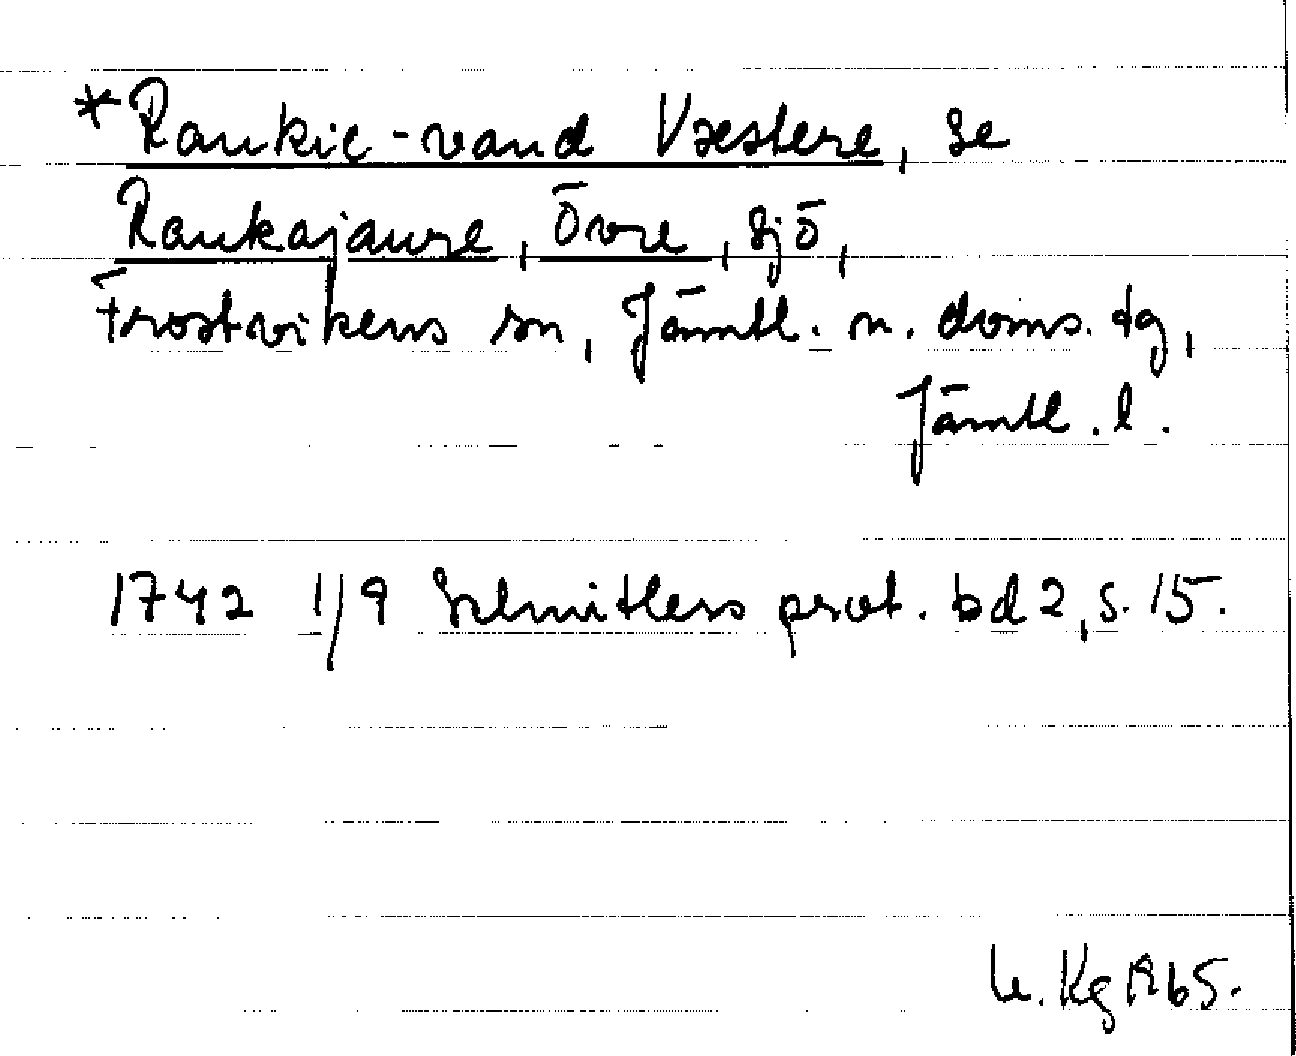 *Raukie-vand Væstere, se
Raukajaure, Övre, sjö,
Frostvikens sn, Jämtl. n. doms. tg,
Jämtl. l.
1742 1/9 Schnitlers prot. bd 2, s. 15.